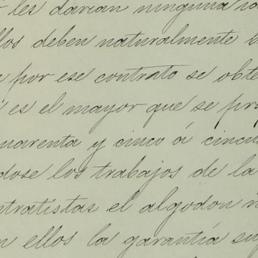 les darian ninguna
llos deben naturalmente
por ese contrato se obte
es el mayor que se pro
uarenta y cinco á cincu
dose los trabajos de la
ntratistas el algodon
n ellos la garantía su